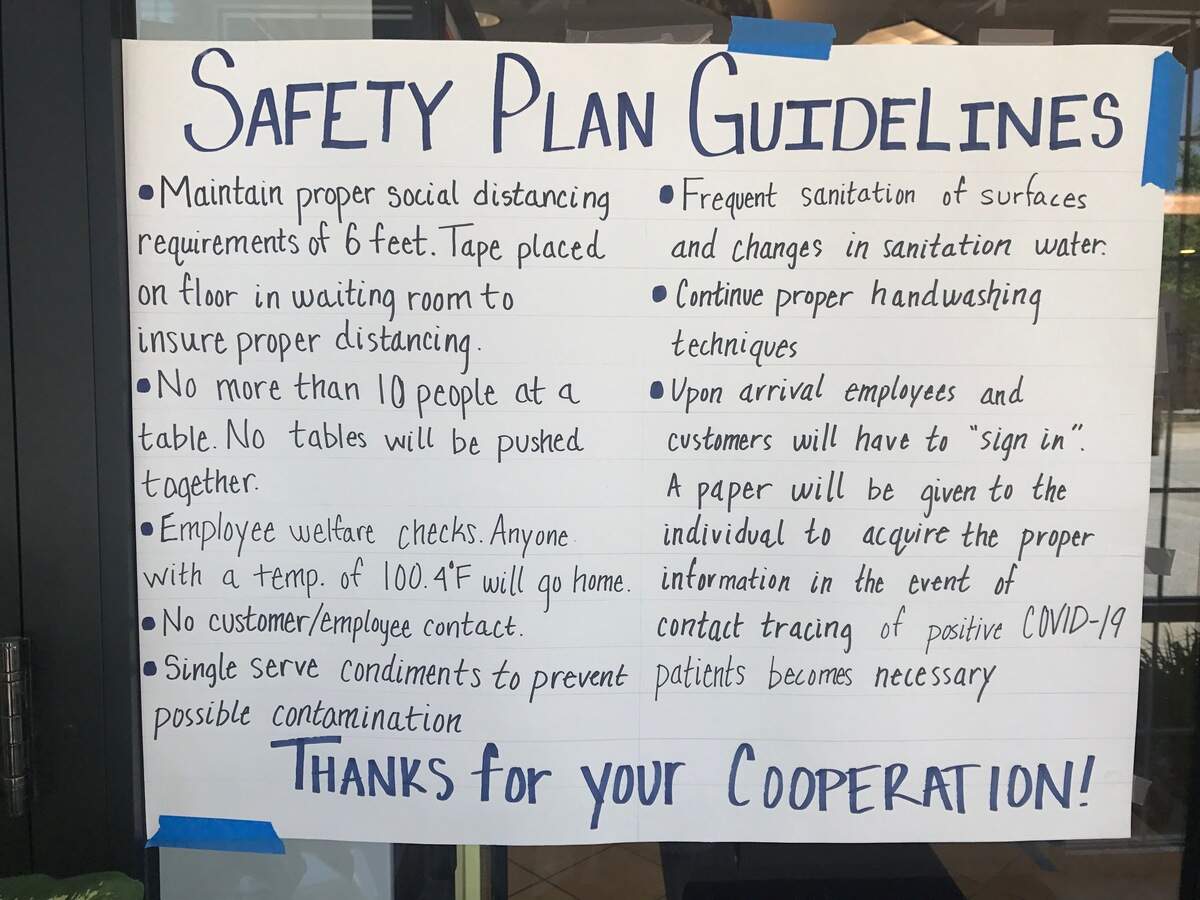 SAFETY PLAN GUIDELINES
• Maintain proper social distancing
requirements of 6 feet. Tape placed
on floor in waiting room to
insure proper distancing.
• No more than 10 people at a
table. No tables will be pushed
together.
• Employee welfare checks. Anyone
with a temp. of 100.4°F will go home.
• No customer/employee contact.
• Single serve condiments to prevent
possible contamination
• Frequent sanitation of surfaces
and changes in sanitation water.
• Continue proper handwashing
techniques
• Upon arrival employees and
customers will have to "sign in".
A paper will be given to the
individual to acquire the proper
information in the event of
contact tracing of positive COVID-19
patients becomes necessary
THANKS for your COOPERATION!